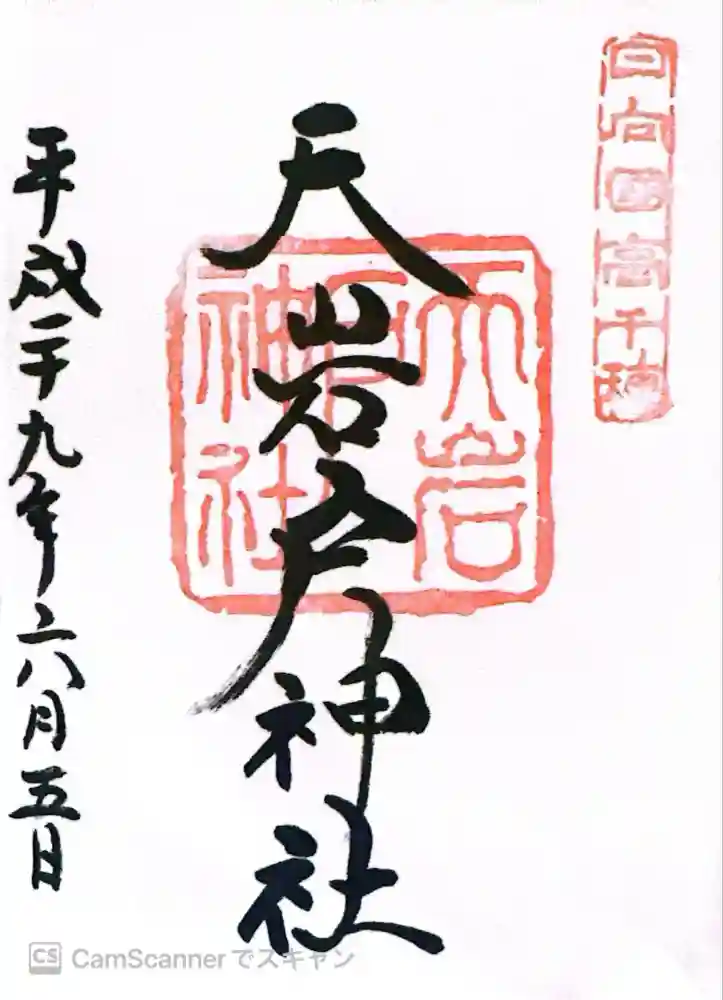 日向国高千穂
天岩戸神社
天岩戸神社
平成二十九年六月五日
CS CamScannerでスキャン